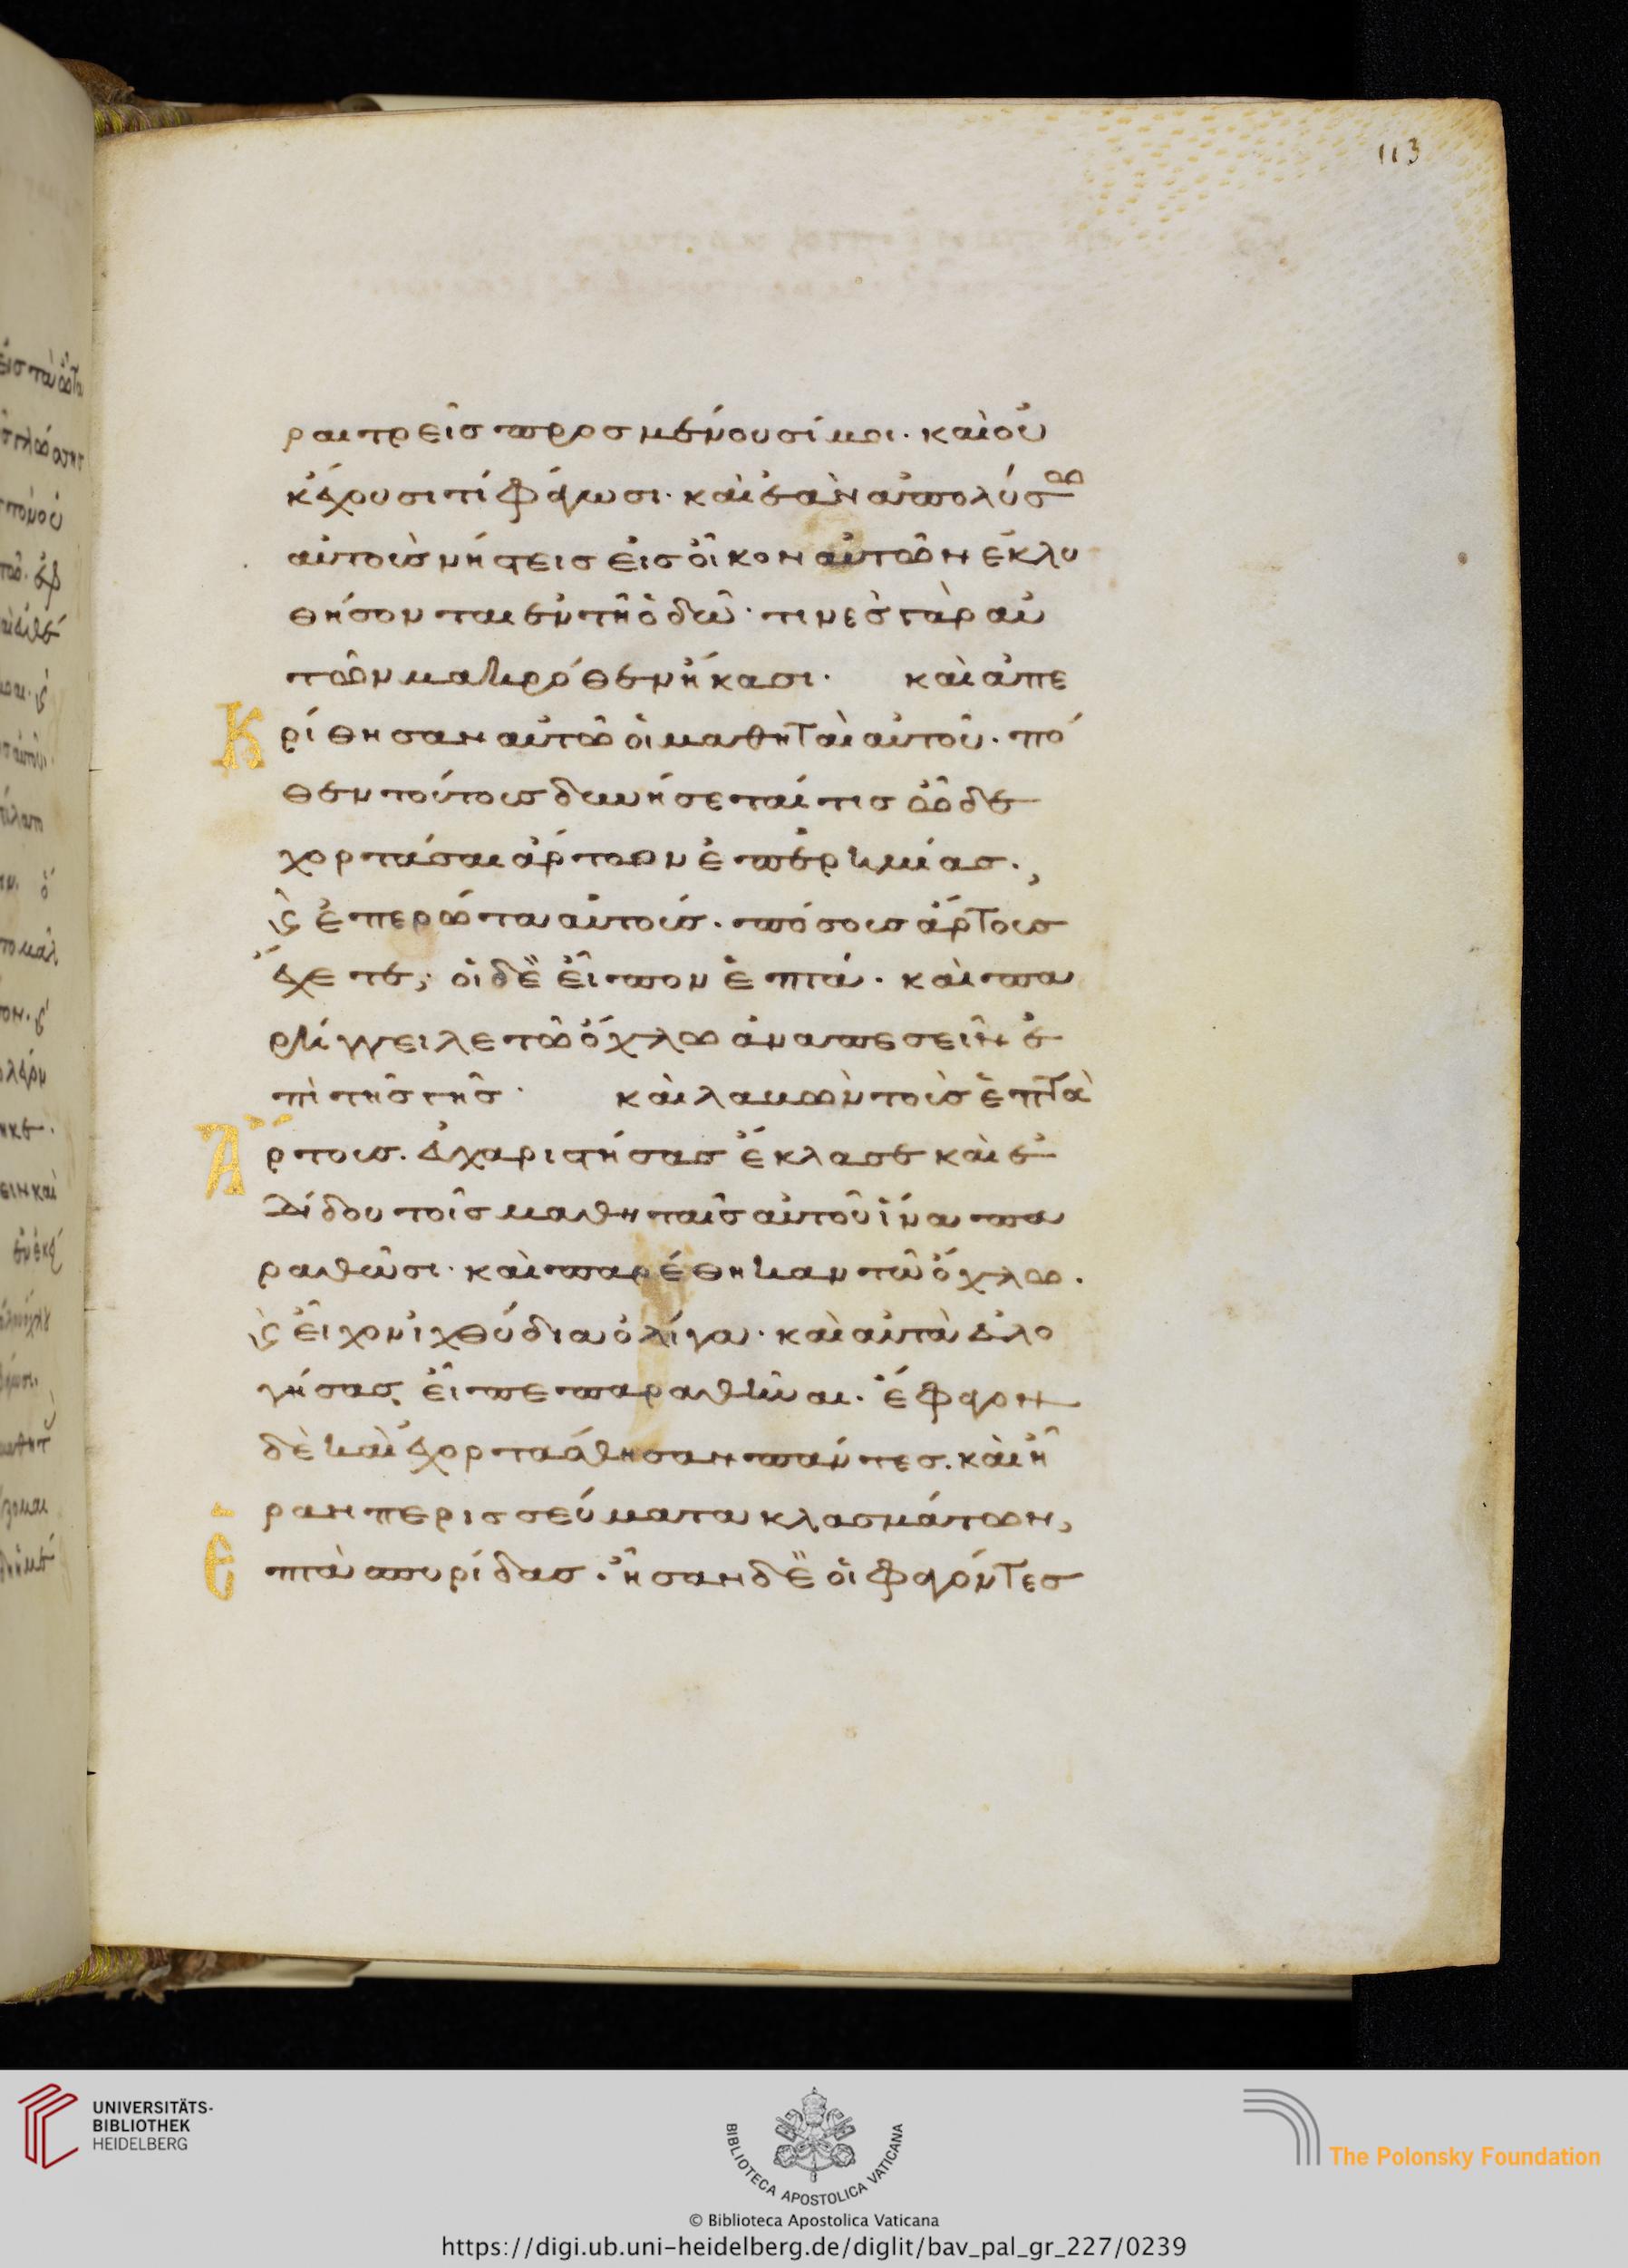 113
ραι τρεῖς προσμένουσί μοι. καὶ οὐ
κ ἔχουσι τί φάγωσι. καὶ ἐὰν ἀπολύσω
αὐτοὺς νήστεις εἰς οἶκον αὐτῶν ἐκλυ
θήσονται ἐν τῇ ὁδῷ. τινὲς γὰρ αὐ
τῶν μακρόθεν ἥκασι. καὶ ἀπε
Κρίθησαν αὐτῷ οἱ μαθηταὶ αὐτοῦ. πό
θεν τούτους δυνήσεταί τις ὧδε
χορτάσαι ἄρτων ἐπ ἐρημίας.
ϗ ἐπερώτα αὐτούς. πόσους ἄρτους
ἔχετε; οἱ δὲ εἶπον ἑπτά. καὶ πα
ρήγγειλε τῷ ὄχλῳ ἀναπεσεῖν ἐ
πὶ τῆς γῆς. καὶ λαβὼν τοὺς ἑπτὰ
Ἄρτους. εὐχαριστήσας ἔκλασε καὶ ἐ
δίδου τοῖς μαθηταῖς αὐτοῦ ἵνα πα
ραθῶσι. καὶ παρέθηκαν τῷ ὄχλῳ.
ϗ εἶχον ἰχθύδια ὀλίγα. καὶ αὐτὰ εὐλο
γήσας εἶπε παραθῆναι. ἔφαγον
δὲ καὶ ἐχορτάσθησαν πάντες. καὶ ἦ
ραν περισσεύματα κλασμάτων,
Ἑπτὰ σπυρίδας. ἦσαν δὲ οἱ φαγόντες
UNIVERSITÄTS-
BIBLIOTHEK
HEIDELBERG
BIBLIOTECA APOSTOLICA VATICANA
The Polonsky Foundation
© Biblioteca Apostolica Vaticana
https://digi.ub.uni-heidelberg.de/diglit/bav_pal_gr_227/0239